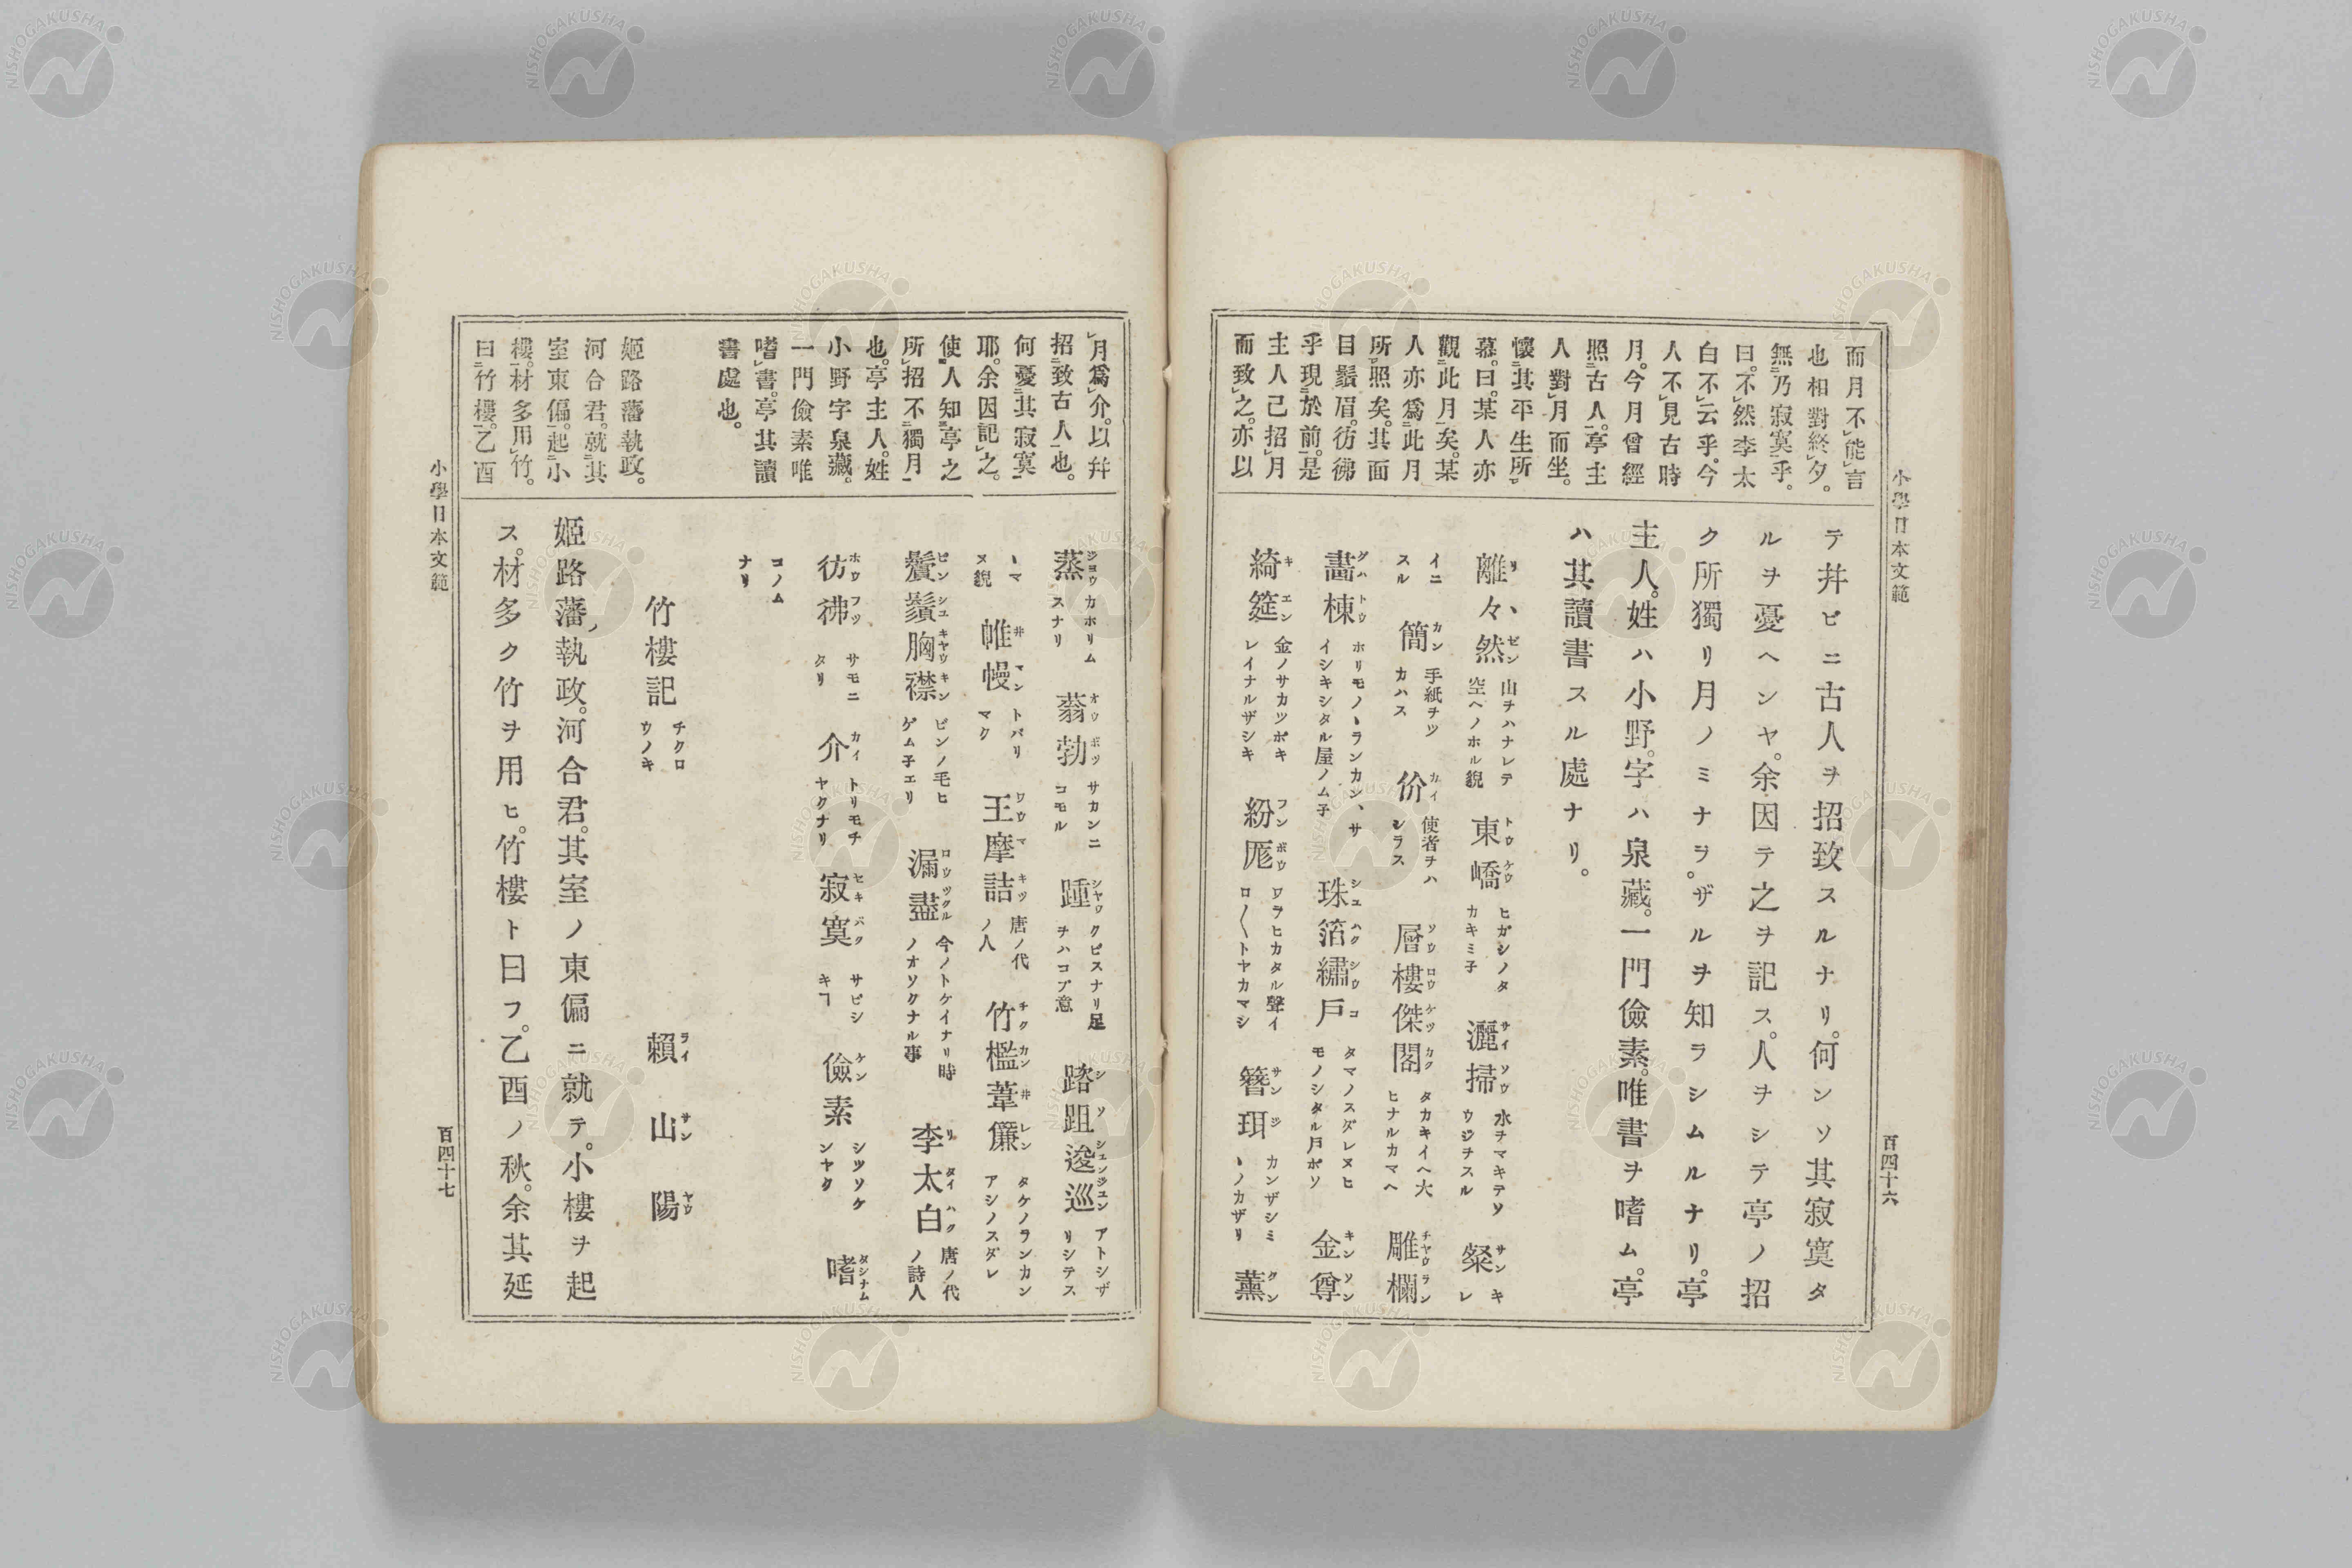 小學日本文範
百四十六
而月不能言
也相對終夕。
無乃寂寞乎。
曰。不然李太
白不云乎。今
人不見古時
月。今月曾經
照古人。亭主
人對月而坐。
懷其平生所
慕。曰。某人亦
觀此月矣。某
人亦爲此月
所照矣。其面
目鬚眉。彷彿
乎現於前。是
主人已招月
而致之。亦以
テ幷ビニ古人ヲ招致スルナリ。何ンソ其寂寞タ
ルヲ憂ヘンヤ。余因テ之ヲ記ス。人ヲシテ亭ノ招
ク所獨リ月ノミナヲ。ザルヲ知ラシムルナリ。亭
主人。姓ハ小野。字ハ泉藏。一門儉素。唯書ヲ嗜ム。亭
ハ其讀書スル處ナリ。
離々然 山チハナレテ空ヘノホル貌 東嶠 ヒガシノタカキミ子 灑掃 水ヲマキテソウジチスル 粲 キレ
イニスル 簡 手紙チツカハス 价 使者チハシラス 層樓傑閣 タカキイヘ大ヒナルカマヘ 雕欄
畵棟 ホリモノヽランカン、サイシキシタル屋ノム子 珠箔繡戶 タマノスダレヌヒモノシタル戶ボソ 金尊
綺筵 金ノサカツボキレイナルザシキ 紛厖 ワラヒカタル聲イロ〱トヤカマシ 簪珥 カンザシミヽノカザリ 薰
月爲介。以幷
招致古人也。
何憂其寂寞
耶。余因記之。
使人知亭之
所招不獨月
也。亭主人。姓
小野字泉藏。
一門儉素唯
嗜書。亭其讀
書處也。
姬路藩執政。
河合君。就其
室東偏。起小
樓。材多用竹。
曰竹樓。乙酉
蒸 カホリムスナリ 蓊勃 サカンニコモル 踵 クビスナリ足チハコブ意 踏跙逡巡 アトシザリシテス
ヽマヌ貌 帷幔 トバリマク 王摩詰 唐ノ代ノ人 竹檻葦簾 タケノランカンアシノスダレ
鬢鬚胸襟 ビンノ毛ヒゲム子エリ 漏盡 今ノトケイナリ時ノオソクナル事 李太白 唐ノ代ノ詩人
彷彿 サモニタリ 介 トリモチヤクナリ 寂寞 サビシキヿ 儉素 シツソケンヤク 嗜
コノムナリ
竹樓記 チクロウノキ
賴山陽
姬路藩ノ執政。河合君。其室ノ東偏ニ就テ。小樓ヲ起
ス。材多ク竹ヲ用ヒ。竹樓ト曰フ。乙酉ノ秋。余其延
小學日本文範
百四十七